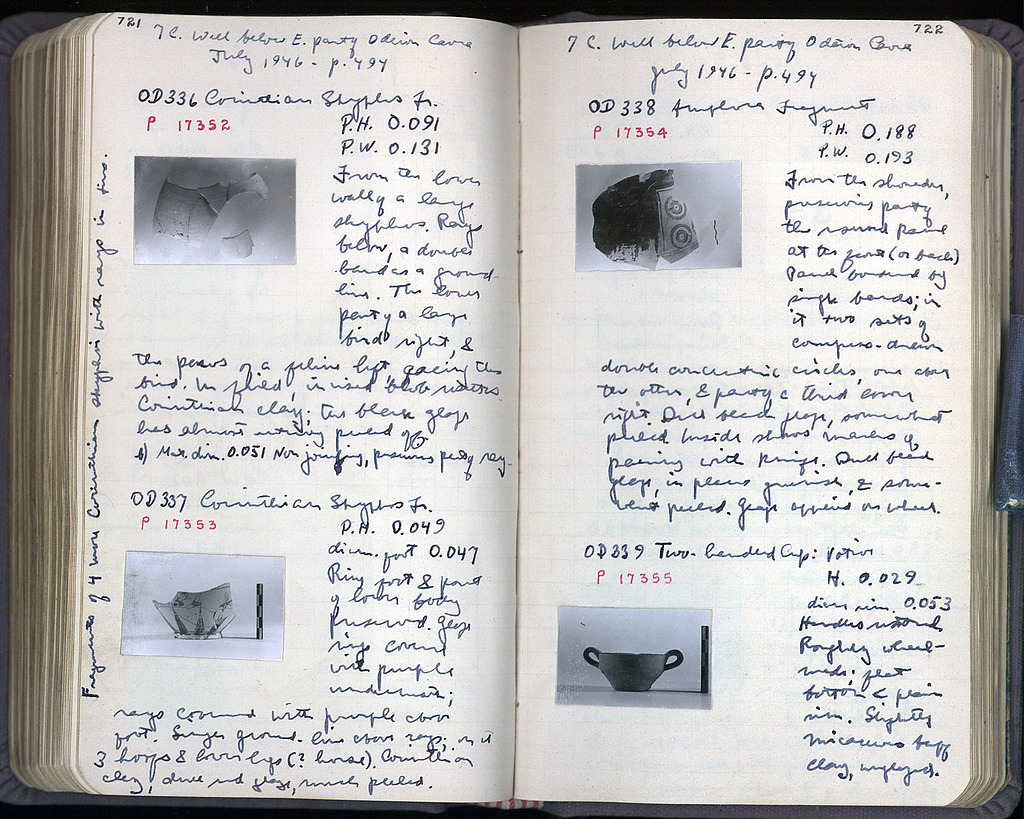 721
7 C. Well below E. party Odeion Cavea
July 1946 - p. 494
OD 336 Corinthian Skyphos Fr.
P 17352
P.H. 0.091
P.W. 0.131
From the lower
wall of a large
skyphos. Rays
below, a double
band as a ground-
line. The lower
part of a large
bird right, &
the paws of a feline left, facing the
bird. In field, incised blob rosettes.
Corinthian clay; the black glaze
has almost entirely peeled off
b) Max. dim. 0.051 Non joining, preserves part of ray.
OD 337 Corinthian Skyphos Fr.
P 17353
P.H. 0.049
diam. foot 0.047
Ring foot & part
of lower body
preserved. Glaze
ring covered
with purple
underneath;
rays covered with purple above
foot. Single ground-line above rays; on it
3 hoofs & lower legs (? horse). Corinthian
clay, dull red glaze, much peeled.
Fragments of 4 more Corinthian skyphoi with rays in two.
722
7 C. Well below E. party Odeion Cavea
July 1946 - p. 494
OD 338 Amphora Fragment
P 17354
P.H. 0.188
P.W. 0.193
From the shoulder,
preserving part of
the reserved panel
at the front (or back)
Panel bordered by
single bands; in
it two sets of
compass-drawn
double concentric circles, one above
the other, & part of a third lower
right. Dull black glaze, somewhat
peeled. Inside shows marks of
paring with knife. Dull black
glaze, in places greenish, & some-
what peeled. Glaze applied on wheel.
OD 339 Two-handled Cup: Votive
P 17355
H. 0.029
diam. rim. 0.053
Handles restored
Roughly wheel-
made: flat
bottom & plain
rim. Slightly
micaceous buff
clay, unglazed.